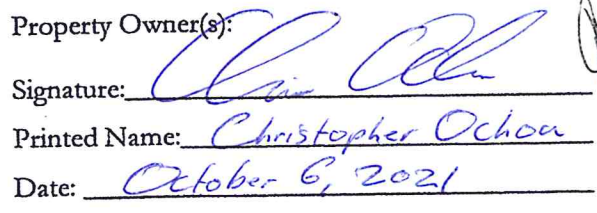 Property Owner(s):
Signature:
Printed Name: Christopher Ochoa
Date: October 6, 2021